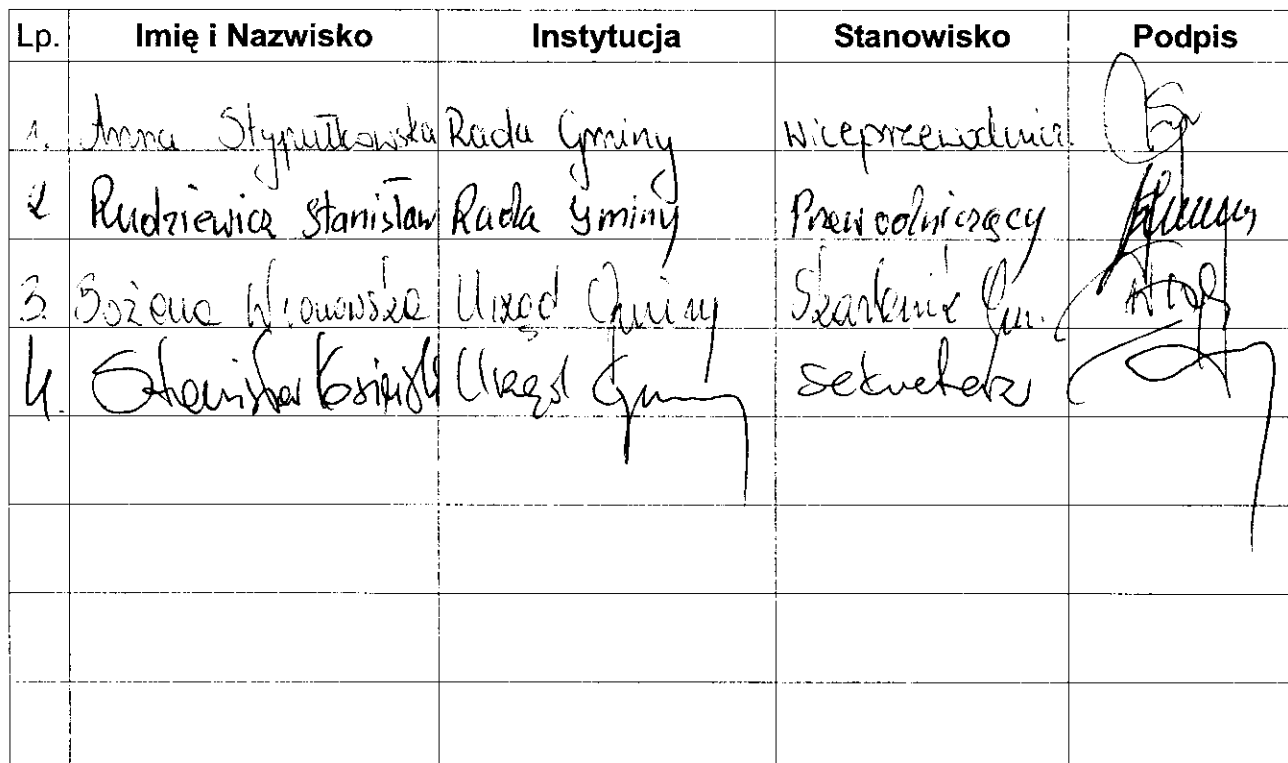 Lp. Imię i Nazwisko Instytucja Stanowisko Podpis
1. Anna Stypułkowska Rada Gminy wiceprzewodnicz.
2 Rudziewicz Stanisław Rada Gminy Przewodniczący
3. Bożena Wronowska Urząd Gminy Skarbnik Gm.
4. Stanisław Urząd Gminy Sekretarz